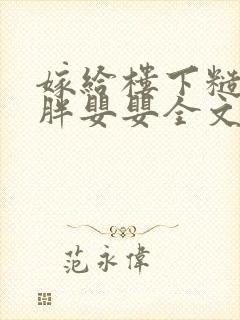 嫁给楼下糙
胖嬰嬰全文
范永偉